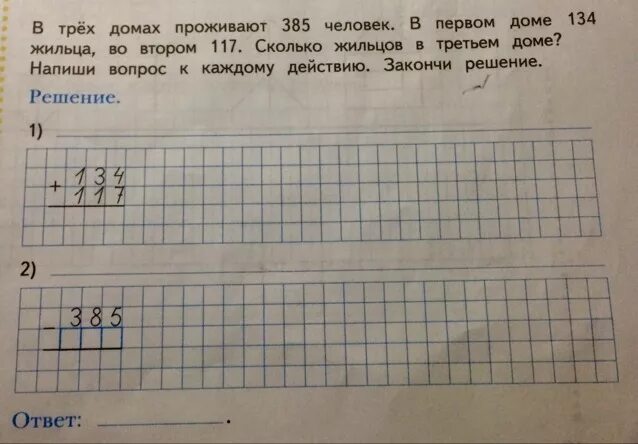 В трёх домах проживают 385 человек. В первом доме 134
жильца, во втором 117. Сколько жильцов в третьем доме?
Напиши вопрос к каждому действию. Закончи решение.
Решение.
1)
134
+
117
2)
385
−
Ответ: .